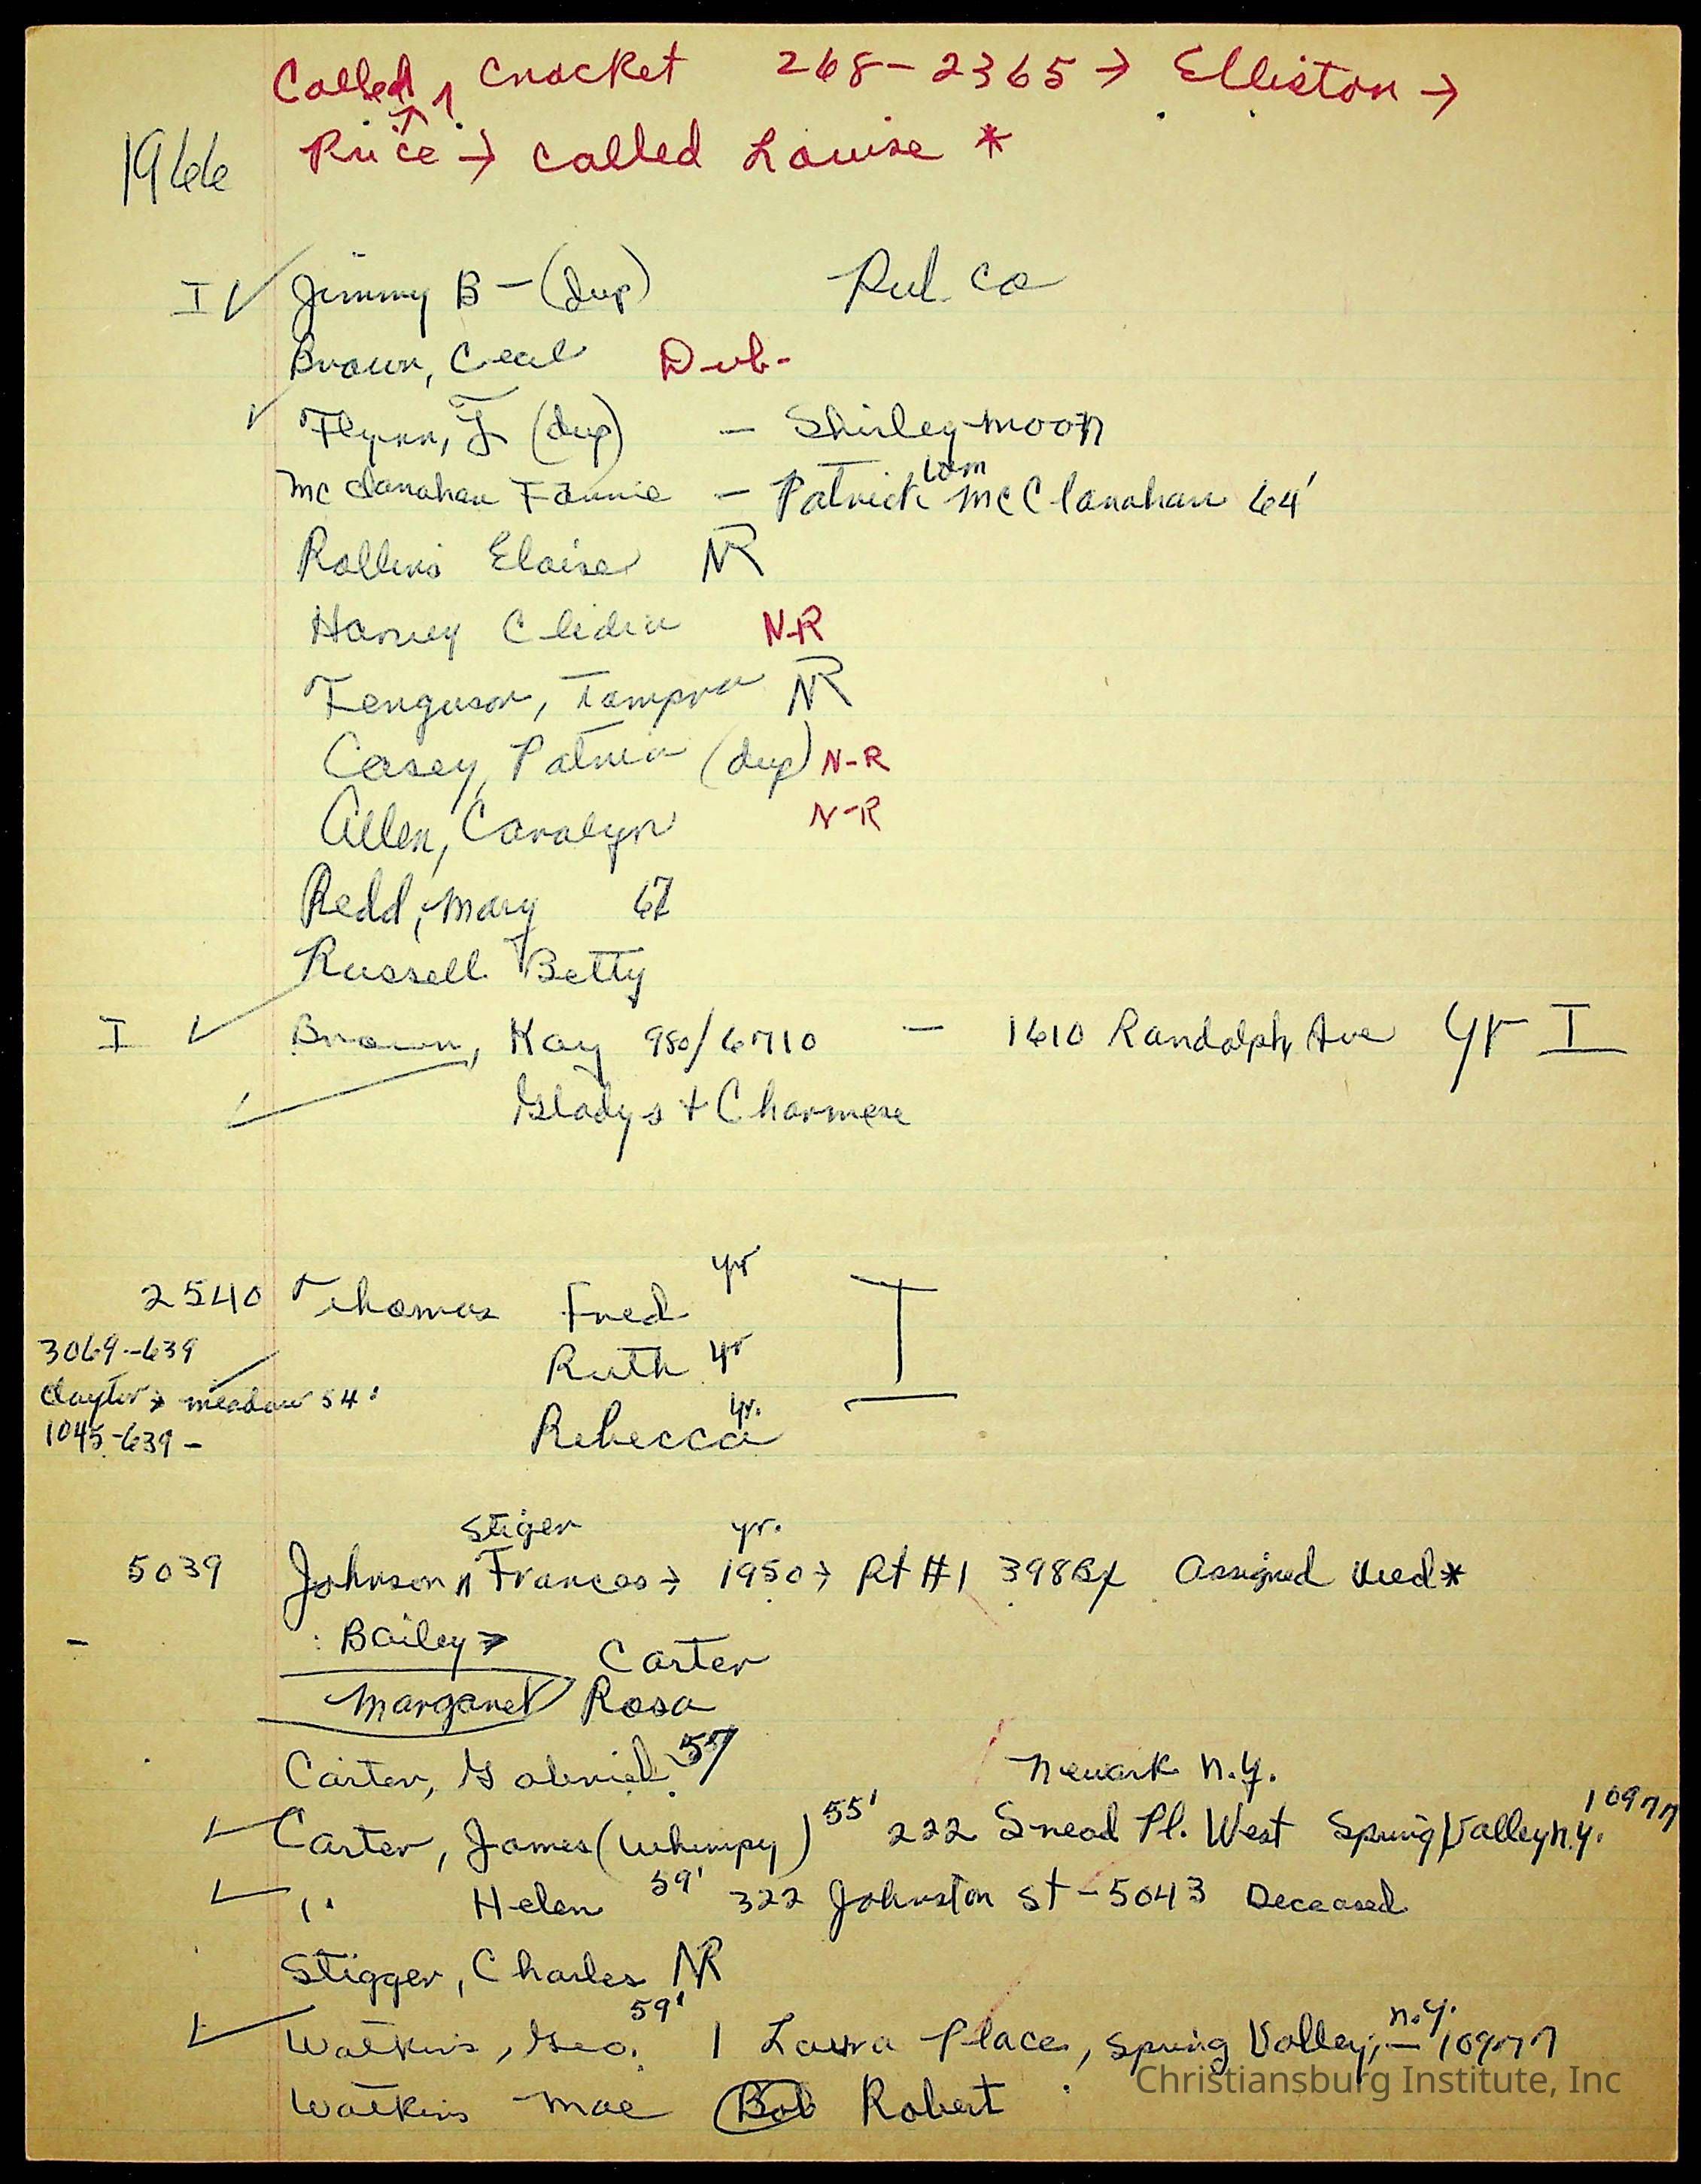 Called, Crocket 268-2365 → Elliston →
1966 Price → called Louise *
I ✓ Jimmy B - (dup) Pul Co
Brown, Ceal Dub-
✓ Flynn, J (dup) - Shirley Moon
Wm
McClanahan Fannie - Patrick McClanahan 64'
Rollins Eloise NR
Harvey Clidia N-R
Ferguson, Tampra NR
Casey, Patricia (dup) N-R
Allen, Carolyn N-R
Redd, Mary
Russell Betty
I ✓ Brown, Kay 980/6710 - 1610 Randolph Ave Yr I
✓ Gladys + Charmese
yr
2540 Thomas Fred I
3069-639
Ruth yr
Claytor → meadow 54'
yr.
1045-639- Rebecca
Stiger yr.
5039 Johnson, Frances → 1950 → Rt #1 398Bx Assigned *
- Bailey → Carter
Margaret Rosa
Carter, Gabriel 57
Newark N.Y.
✓ Carter, James (Whimpy) 55' 222 Snead Pl. West Spring Valley N.Y. 10977
✓ " Helen 59' 322 Johnston St - 5043 Deceased
Stigger, Charles NR
✓ Watkins, Geo. 59' 1 Laura Place, Spring Valley, N.Y. - 10977
Christiansburg Institute, Inc
Watkins Mae Bob Robert